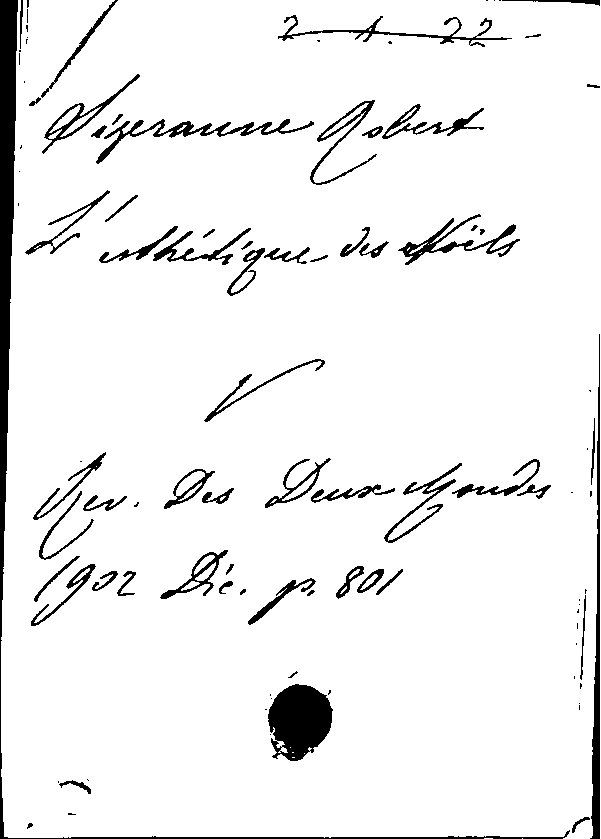 2. 1. 22
Sizeranne Robert
L'esthétique des Noëls
V
Rev. Des Deux Mondes
1902 Déc. p. 801